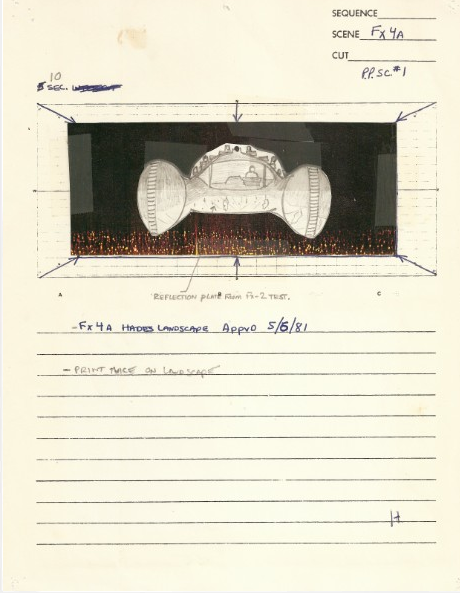 SEQUENCE
SCENE FX 4A
CUT
P.P. SC. #1
10
5 SEC.
A B C
REFLECTION PLATE FROM FX-2 TEST.
- FX 4A HADES LANDSCAPE APPVD 5/6/81
- PRINT MACE ON LANDSCAPE